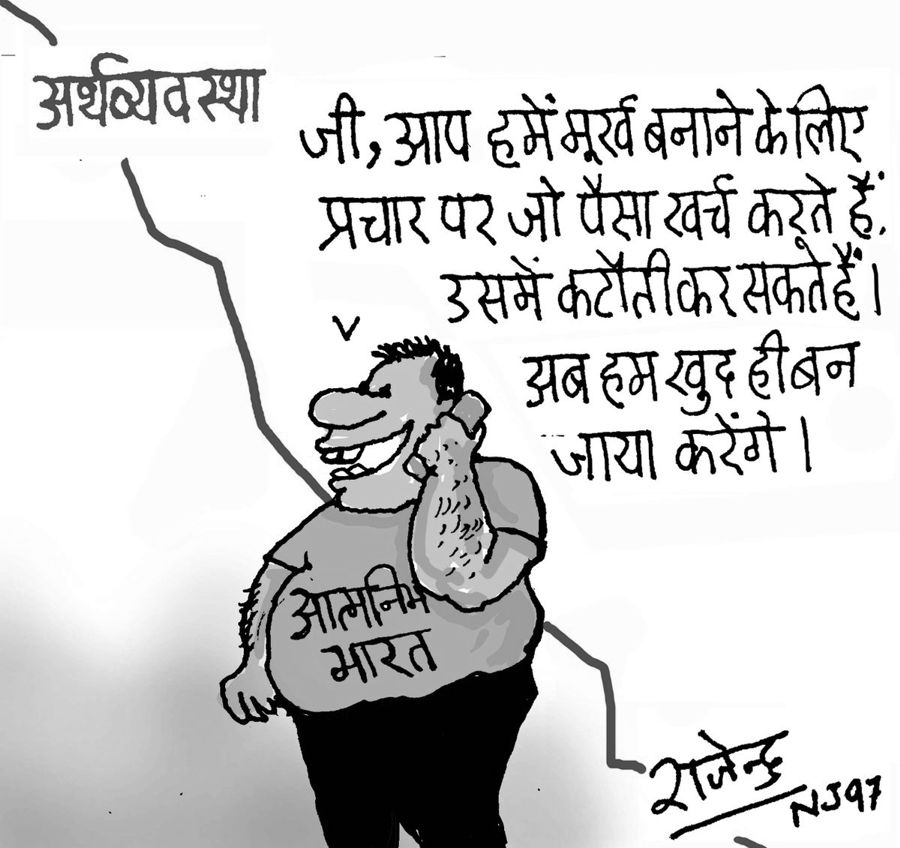 अर्थव्यवस्था
जी, आप हमें मूर्ख बनाने के लिए
प्रचार पर जो पैसा खर्च करते हैं.
उसमें कटौती कर सकते हैं।
अब हम खुद ही बन
जाया करेंगे।
आत्मनिर्भ
भारत
राजेन्द्र
NJ97